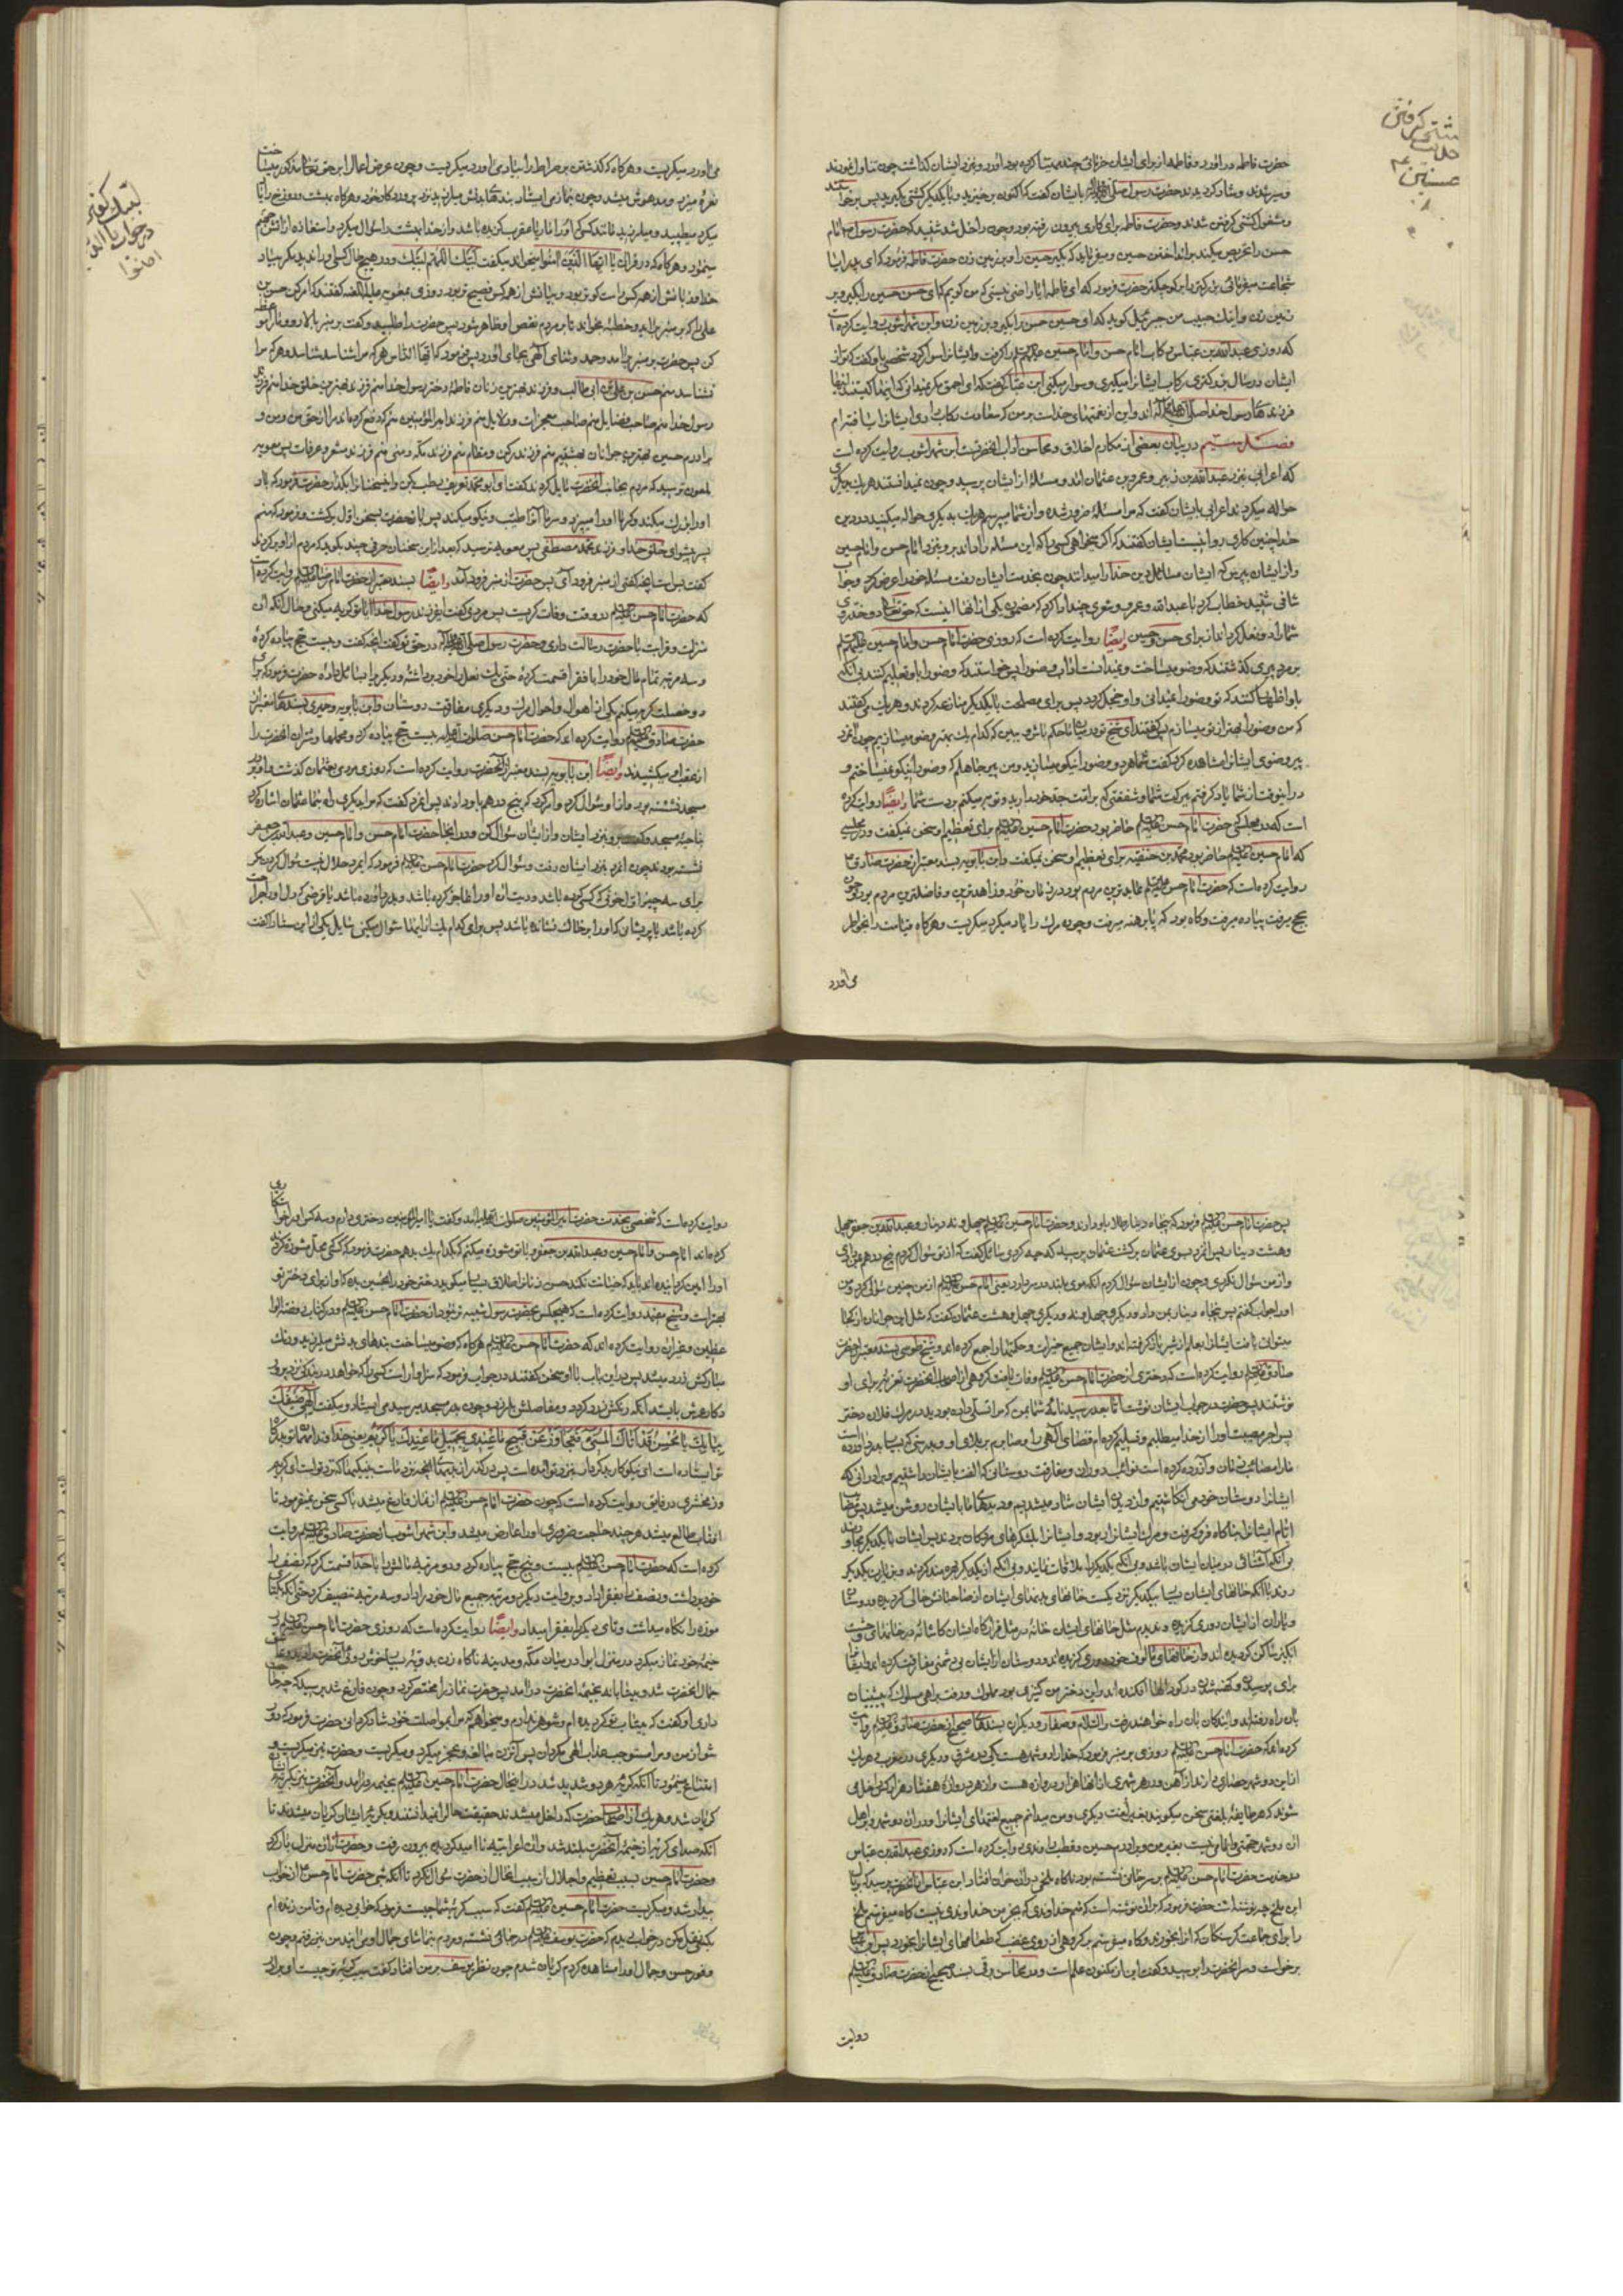 کشتی گرفتن
حضرت فاطمه در آورد و فاطمه از برای ایشان
و سیر شدند و شاد گردیدند حضرت رسول بایشان گفت که اکنون برخیزید و با یکدیگر کشتی بگیرید پس برخاستند
و مشغول کشتی گرفتن شدند و حضرت فاطمه برای کاری بیرون رفته بود و چون داخل شد شنید که حضرت رسول
حسن را تحریص میکند بر انداختن حسین و میفرماید که بگیر حسین را و بر زمین زن حضرت فاطمه فرمود که ای پدر آیا
شجاعت میفرمائی بزرگتر را بر کوچکتر حضرت فرمود که ای فاطمه آیا راضی نیستی که من گویم که ای حسن حسین را بگیر و بر
زمین زن و اینک حبیب من جبرئیل گوید که ای حسین حسن را بگیر و بر زمین زن و ابن شهرآشوب روایت کرده است
که روزی عبدالله بن عباس رکاب امام حسن و امام حسین را گرفت و ایشانرا سوار کرد شخصی باو گفت که تو از
ایشان در سال بزرگتری رکاب ایشانرا میگیری و سوار میکنی ابن عباس گفت که ای احمق مگر نمیدانی که اینها کیستند اینها
فرزندهای رسول خدا اند و این از نعمتهای خداست بر من که سعادت
فصل سیم در بیان بعضی از مکارم اخلاق و محاسن آداب آنحضرت ابن شهرآشوب روایت کرده است
که اعرابی بنزد عبدالله بن زبیر و عمرو بن عثمان آمد و مسئلهٔ از ایشان پرسید و چون نمیدانستند هر یک بدیگری
حواله میکردند اعرابی بایشان گفت که مرا مسئلهٔ ضرور شده و از شما میپرسم هر یک بدیگری حواله میکنید در دین
خدا چنین کاری روا نیست ایشان گفتند که اگر میخواهی کسی را که این مسئله را داند برو بنزد امام حسن و امام حسین
و از ایشان بپرس که ایشان مسائل دین خدا را میدانند چون بخدمت ایشان رفت مسئله خود را عرض کرد و جواب
شافی شنید خطاب کرد با عبدالله و عمرو و شعری چند ادا کرد که مضمون یکی از آنها اینست که حق تعالی دو خد روی
شما را دو نعل گرداند از برای حسن و حسین وایضًا روایت کرده است که روزی حضرت امام حسن و امام حسین
بر مرد پیری گذشتند که وضو میساخت و نمیدانست آداب وضو را پس خواستند که وضو را باو تعلیم کنند بی آنکه
باو اظهار کنند که تو وضو را نمیدانی و او خجل گردد پس برای مصلحت با یکدیگر منازعه کردند و هر یک میگفتند
که من وضو را بهتر از تو میسازم پس گفتند ای شیخ تو در میان ما حکم باش و ببین که کدام یک بهتر وضو میسازیم چون آنمرد
پیر وضوی ایشانرا مشاهده کرد گفت شما هر دو وضو را نیکو میسازید و من پیر جاهلم که وضو را نیکو نمیساختم و
در اینوقت از شما یاد گرفتم ببرکت شما و شفقتی که بر امت جد خود دارید و توبه میکنم بر دست شما وایضًا روایت کرده
است که در مجلسی که حضرت امام حسن حاضر بود حضرت امام حسین برای تعظیم او سخن نمیگفت و در مجلسی
که امام حسین حاضر بود محمد بن حنفیه برای تعظیم او سخن نمیگفت و ابن بابویه بسند معتبر از حضرت صادق
روایت کرده است که حضرت امام حسن عابدترین مردم بود در زمان خود و زاهدترین و فاضلترین مردم بود و چون
بحج میرفت پیاده میرفت و گاه بود که پا برهنه میرفت و چون مرگ را یاد میکرد میگریست و هرگاه قیامت را بخاطر
می آورد
لبیک گفتن
در جواب یا ایها الذین
آمنوا
می آورد میگریست و هرگاه که گذشتن بر صراط را بیاد می آورد میگریست و چون عرض اعمال بر حق تعالی مذکور میساخت
نعره میزد و مدهوش میشد و چون بنماز می ایستاد بندهای بدنش میلرزید نزد پروردگار خود و هرگاه بهشت و دوزخ را یاد
میکرد میطپید و میلرزید مانند کسی که او را مار یا عقرب گزیده باشد و از خدا بهشت را سؤال میکرد و استعاذه از آتش جهنم
مینمود و هرگاه که در قرآن یا ایها الذین آمنوا میخواند میگفت لبیک اللهم لبیک و در هیچ حال کسی او را ندید مگر بیاد
خدا و زبانش از همه کس راستگوتر بود و بیانش از همه کس فصیح تر بود روزی بمعویه علیه اللعنه گفتند که امر کن حسن بن
علی را که بر منبر براید و خطبه بخواند تا بر مردم نقص او ظاهر شود پس حضرت را طلبید و گفت بر منبر بالا رو و ما را موعظه
کن پس حضرت بر منبر برآمد و حمد و ثنای الهی بجای آورد پس فرمود که ایها الناس هرکه مرا شناسد شناسد و هرکه مرا
نشناسد منم حسن بن علی بن ابی طالب و فرزند بهترین زنان فاطمه دختر رسول خدا منم فرزند بهترین خلق خدا منم فرزند
رسول خدا منم صاحب فضایل منم صاحب معجزات و دلایل منم فرزند امیرالمؤمنین منم که دفع کرده اند مرا از حق من و من و
برادرم حسین بهترین جوانان بهشتیم منم فرزند رکن و مقام منم فرزند مکه و منی منم فرزند مشعر و عرفات پس معویه
ملعون ترسید که مردم بجانب آنحضرت مایل گردند گفت ای ابو محمد تعریف رطب بکن و این سخنانرا بگذار حضرت فرمود که باد
او را بزرگ میکند و گرما او را میپزد و سرما آنرا طیب و نیکو میکند پس باز آنحضرت بسخن اول برگشت و فرمود که منم
پیشوای خلق خدا و فرزند محمد مصطفی پس معویه ترسید که بعد از این سخنان حرفی چند بگوید که مردم از او برگردند
گفت بس است آنچه گفتی از منبر فرود آی پس حضرت از منبر فرود آمد وایضًا بسند معتبر از حضرت امام رضا روایت کرده است
که حضرت امام حسن در وقت وفات گریست پس مردی گفت ای فرزند رسول خدا آیا تو گریه میکنی و حال آنکه آن
منزلت و قرابت با حضرت رسالت داری و حضرت رسول در حق تو گفت آنچه گفت و بیست حج پیاده کردهٔ
و سه مرتبه تمام مال خود را با فقرا قسمت کردهٔ حتی یک نعل را خود برداشتهٔ و دیگری را بسائل دادهٔ حضرت فرمود که برای
دو خصلت گریه میکنم یکی از اهوال و احوال مرگ و دیگری مفارقت دوستان و ابن بابویه و حمیری بسندهای معتبر از
حضرت صادق روایت کرده اند که حضرت امام حسن بیست حج پیاده کرد و محملها و شتران آنحضرت را
از عقب او میکشیدند وایضًا ابن بابویه بسند معتبر از آنحضرت روایت کرده است که روزی مردی بعثمان گذشت و او بر در
مسجد نشسته بود و از او سؤال کرد و امر کرد که پنج درهم باو دادند پس آنمرد گفت که مرا بدیگری راه بنما عثمان اشاره کرد
بناحیهٔ مسجد و گفت برو بنزد ایشان و از ایشان سؤال کن و در آنجا حضرت امام حسن و امام حسین و عبدالله بن جعفر
نشسته بودند چون آنمرد بنزد ایشان رفت و سؤال کرد حضرت امام حسن فرمود که ای مرد حلال نیست سؤال کردن مگر
برای سه چیز
کرده باشد یا پریشانی که او را بر خاک نشانده باشد پس برای کدام یک از اینها سؤال میکنی سایل یکی از این سه را گفت
پس حضرت امام حسن فرمود که پنجاه دینار طلا باو دادند و حضرت امام حسین چهل و نه دینار و عبدالله بن جعفر چهل
و هشت دینار پس آنمرد بسوی عثمان برگشت عثمان پرسید که چه کردی سائل گفت که از تو سؤال کردم پنج درهم دادی
و از من سؤال نکردی و چون از ایشان سؤال کردم آنکه موی بلند در سر دارد یعنی امام حسن از من چنین سؤالی کرد و من
او را جواب گفتم پس پنجاه دینار بمن داد و دیگری چهل و نه و دیگری چهل و هشت عثمان گفت که مثل این جوانان از کجا
میتوانی یافت ایشانرا بعلم از شیر باز گرفته اند و ایشان جمیع خیرات و حکمتها را جمع کرده اند و شیخ طوسی بسند معتبر از حضرت
صادق روایت کرده است که دختری از حضرت امام حسن وفات یافت گروهی از اصحاب آنحضرت تعزیه برای او
نوشتند پس حضرت در جواب ایشان نوشت اما بعد رسید نامهٔ شما بمن که مرا تسلی داده بودید در مرگ فلان دختر
پس اجر مصیبت او را از خدا میطلبم و تسلیم کرده ام قضای الهی را و صابرم بر بلای او
ما را مصائب زمان و آزرده کرده است نوائب دوران و مفارقت دوستانی که الفت بایشان داشتیم و برادرانی که
ایشانرا دوستان خود می انگاشتیم و از دیدن ایشان شاد میشدیم و دیدهای ما بایشان روشن میشد پس مصائب
ایام ایشانرا بناگاه فرو گرفت و مرگ ایشانرا ربود و ایشانرا بلشکرهای مردگان بردند پس ایشان با یکدیگر مجاورند
بی آنکه آشنائی در میان ایشان باشد و بی آنکه یکدیگر را ملاقات نمایند و بی آنکه از یکدیگر بهره مند گردند و بزیارت یکدیگر
روند با آنکه خانهای ایشان بسیار بیکدیگر نزدیکست خانهای بدنهای ایشان از صاحبانش خالی گردیده و دوستان
و یاران از ایشان دوری گزیده و ندیدم مثل خانهای ایشان خانهٔ و مثل قرارگاه ایشان کاشانهٔ در خانهای وحشت
انگیز ساکن گردیده اند و از خانهای مألوف خود دوری گزیده اند و دوستان از ایشان بی دشمنی مفارقت کرده اند و ایشانرا
برای پوسیدن و کهنه شدن در گودالها افکنده اند و این دختر من کنیزی بود مملوک و رفت براهی مسلوک که پیشینیان
بآن راه رفته اند و آیندگان بآن راه خواهند رفت والسلام و صفار و دیگران بسندهای صحیح از حضرت صادق روایت
کرده اند که حضرت امام حسن روزی بر منبر فرمود که خدا را دو شهر هست یکی در مشرق و دیگری در مغرب و هر یک
از این دو شهر حصاری دارند از آهن و در هر شهری از آنها هزار دروازه هست و از هر دروازهٔ هفتاد هزار کس داخل می
شوند که هر طایفهٔ بلغتی سخن میگویند بغیر لغت دیگری و من میدانم جمیع لغتهای ایشانرا و در آن دو شهر و بر اهل
آن دو شهر حجتی و امامی نیست بغیر من و برادرم حسین و قطب راوندی روایت کرده است که روزی عبدالله بن عباس
در خدمت حضرت امام حسن بر سر خوانی نشسته بود ناگاه ملخی در آن خوان افتاد ابن عباس از آنحضرت پرسید که بر بال
این ملخ چه نوشته است حضرت فرمود که بر آن نوشته است که منم خداوندی که بجز من خداوندی نیست گاه میفرستم ملخ
را برای جماعت گرسنگان که آنرا بخورند و گاه میفرستم بر گروهی از روی غضب که طعامهای ایشانرا بخورد پس ابن عباس
برخواست و سر آنحضرت را بوسید و گفت این از مکنون علم است و در محاسن برقی بسند صحیح از حضرت صادق
روایت
روایت کرده است که شخصی بخدمت حضرت امیرالمؤمنین صلوات الله علیه آمد و گفت یا امیرالمؤمنین دختری دارم و سه کس او را خواستگاری
کرده اند امام حسن و امام حسین و عبدالله بن جعفر و با تو مشوره میکنم که بکدام یک بدهم حضرت فرمود که کسی که محل مشوره گردید
او را امین گردانیده اند باید که خیانت نکند حسن زنانرا طلاق بسیار میگوید دختر خود را بحسین بده که او از برای دختر تو
بهتر است و شیخ مفید روایت کرده است که هیچکس بحضرت رسول شبیه تر نبود از حضرت امام حسن و در کتاب روضة الوا
عظین و غیر آن روایت کرده اند که حضرت امام حسن هرگاه که وضو میساخت بندهای بدنش میلرزید و رنگ
مبارکش زرد میشد پس در این باب با او سخن گفتند در جواب فرمود که سزاوار است کسی را که خواهد در بندگی نزد پروردگار
عرش بایستد آنکه رنگش زرد گردد و مفاصلش بلرزد و چون بدر مسجد میرسید می ایستاد و میگفت الهی ضیفک
ببابک یا محسن قد اتاک المسیء فتجاوز عن قبیح ما عندی بجمیل ما عندک یا کریم یعنی خداوندا مهمان تو بدرگاه
تو ایستاده است ای نیکوکار بدکردار بنزد تو آمده است پس در گذر از بدیها آنچه نزد ماست بنیکیها که نزد تو است ای کریم
و زمخشری در فایق روایت کرده است که چون حضرت امام حسن از نماز فارغ میشد با کسی سخن نمیفرمود تا
آفتاب طالع میشد هر چند حاجت ضروری او را عارض میشد و ابن شهرآشوب از حضرت صادق روایت
کرده است که حضرت امام حسن بیست و پنج حج پیاده کرد و دو مرتبه مالش را با خدا قسمت کرد که نصف را
خود برداشت و نصف را بفقرا داد و بروایت دیگر دو مرتبه جمیع مال خود را داد و سه مرتبه تنصیف کرد حتی آنکه یکتای
موزه را نگاه میداشت و تای دیگر را بفقرا میداد وایضًا روایت کرده است که روزی حضرت امام حسن در
خیمهٔ خود نماز میکرد در منزل ابوا در میان مکه و مدینه ناگاه زن بدویهٔ بسیار خوش روئی آنحضرت را دید و عاشق
جمال آنحضرت شد و بیتابانه بخیمهٔ آنحضرت درآمد پس حضرت نماز را مختصر کرد و چون فارغ شد پرسید که چه حاجت
داری او گفت که بیتاب تو گردیده ام و شوهر ندارم و میخواهم که مرا بمواصلت خود شاد گردانی حضرت فرمود که دور
شو از من و مرا مستوجب عذاب الهی مگردان پس آنزن مبالغه و عجز میکرد و میگریست و حضرت نیز میگریست و
امتناع مینمود تا آنکه گریهٔ هر دو شدید شد در اینحال حضرت امام حسین بخیمه درآمد و آنحضرت نیز بگریهٔ ایشان
گریان شد و هر یک از اصحاب حضرت که داخل میشدند حقیقت حال را نمیدانستند و بگریهٔ ایشان گریان میشدند تا
آنکه صدای گریه از خیمهٔ آنحضرت بلند شد و آن اعرابیه ناامید گردیده بیرون رفت و حضرت از آن منزل بار کرد
و حضرت امام حسین بسبب تعظیم و اجلال از سبب آنحال از حضرت سؤال نکرد تا آنکه شبی حضرت امام حسن از خواب
بیدار شد و میگریست حضرت امام حسین گفت که سبب گریهٔ شما چیست فرمود که خوابی دیده ام و تا من زنده ام
بکسی نقل مکن در خواب دیدم که حضرت یوسف در جائی نشسته و مردم بتماشای جمال او می آیند من نیز رفتم و چون
وفور حسن و جمال او را مشاهده کردم گریان شدم چون نظر یوسف بر من افتاد گفت سبب گریهٔ تو چیست ای برادر